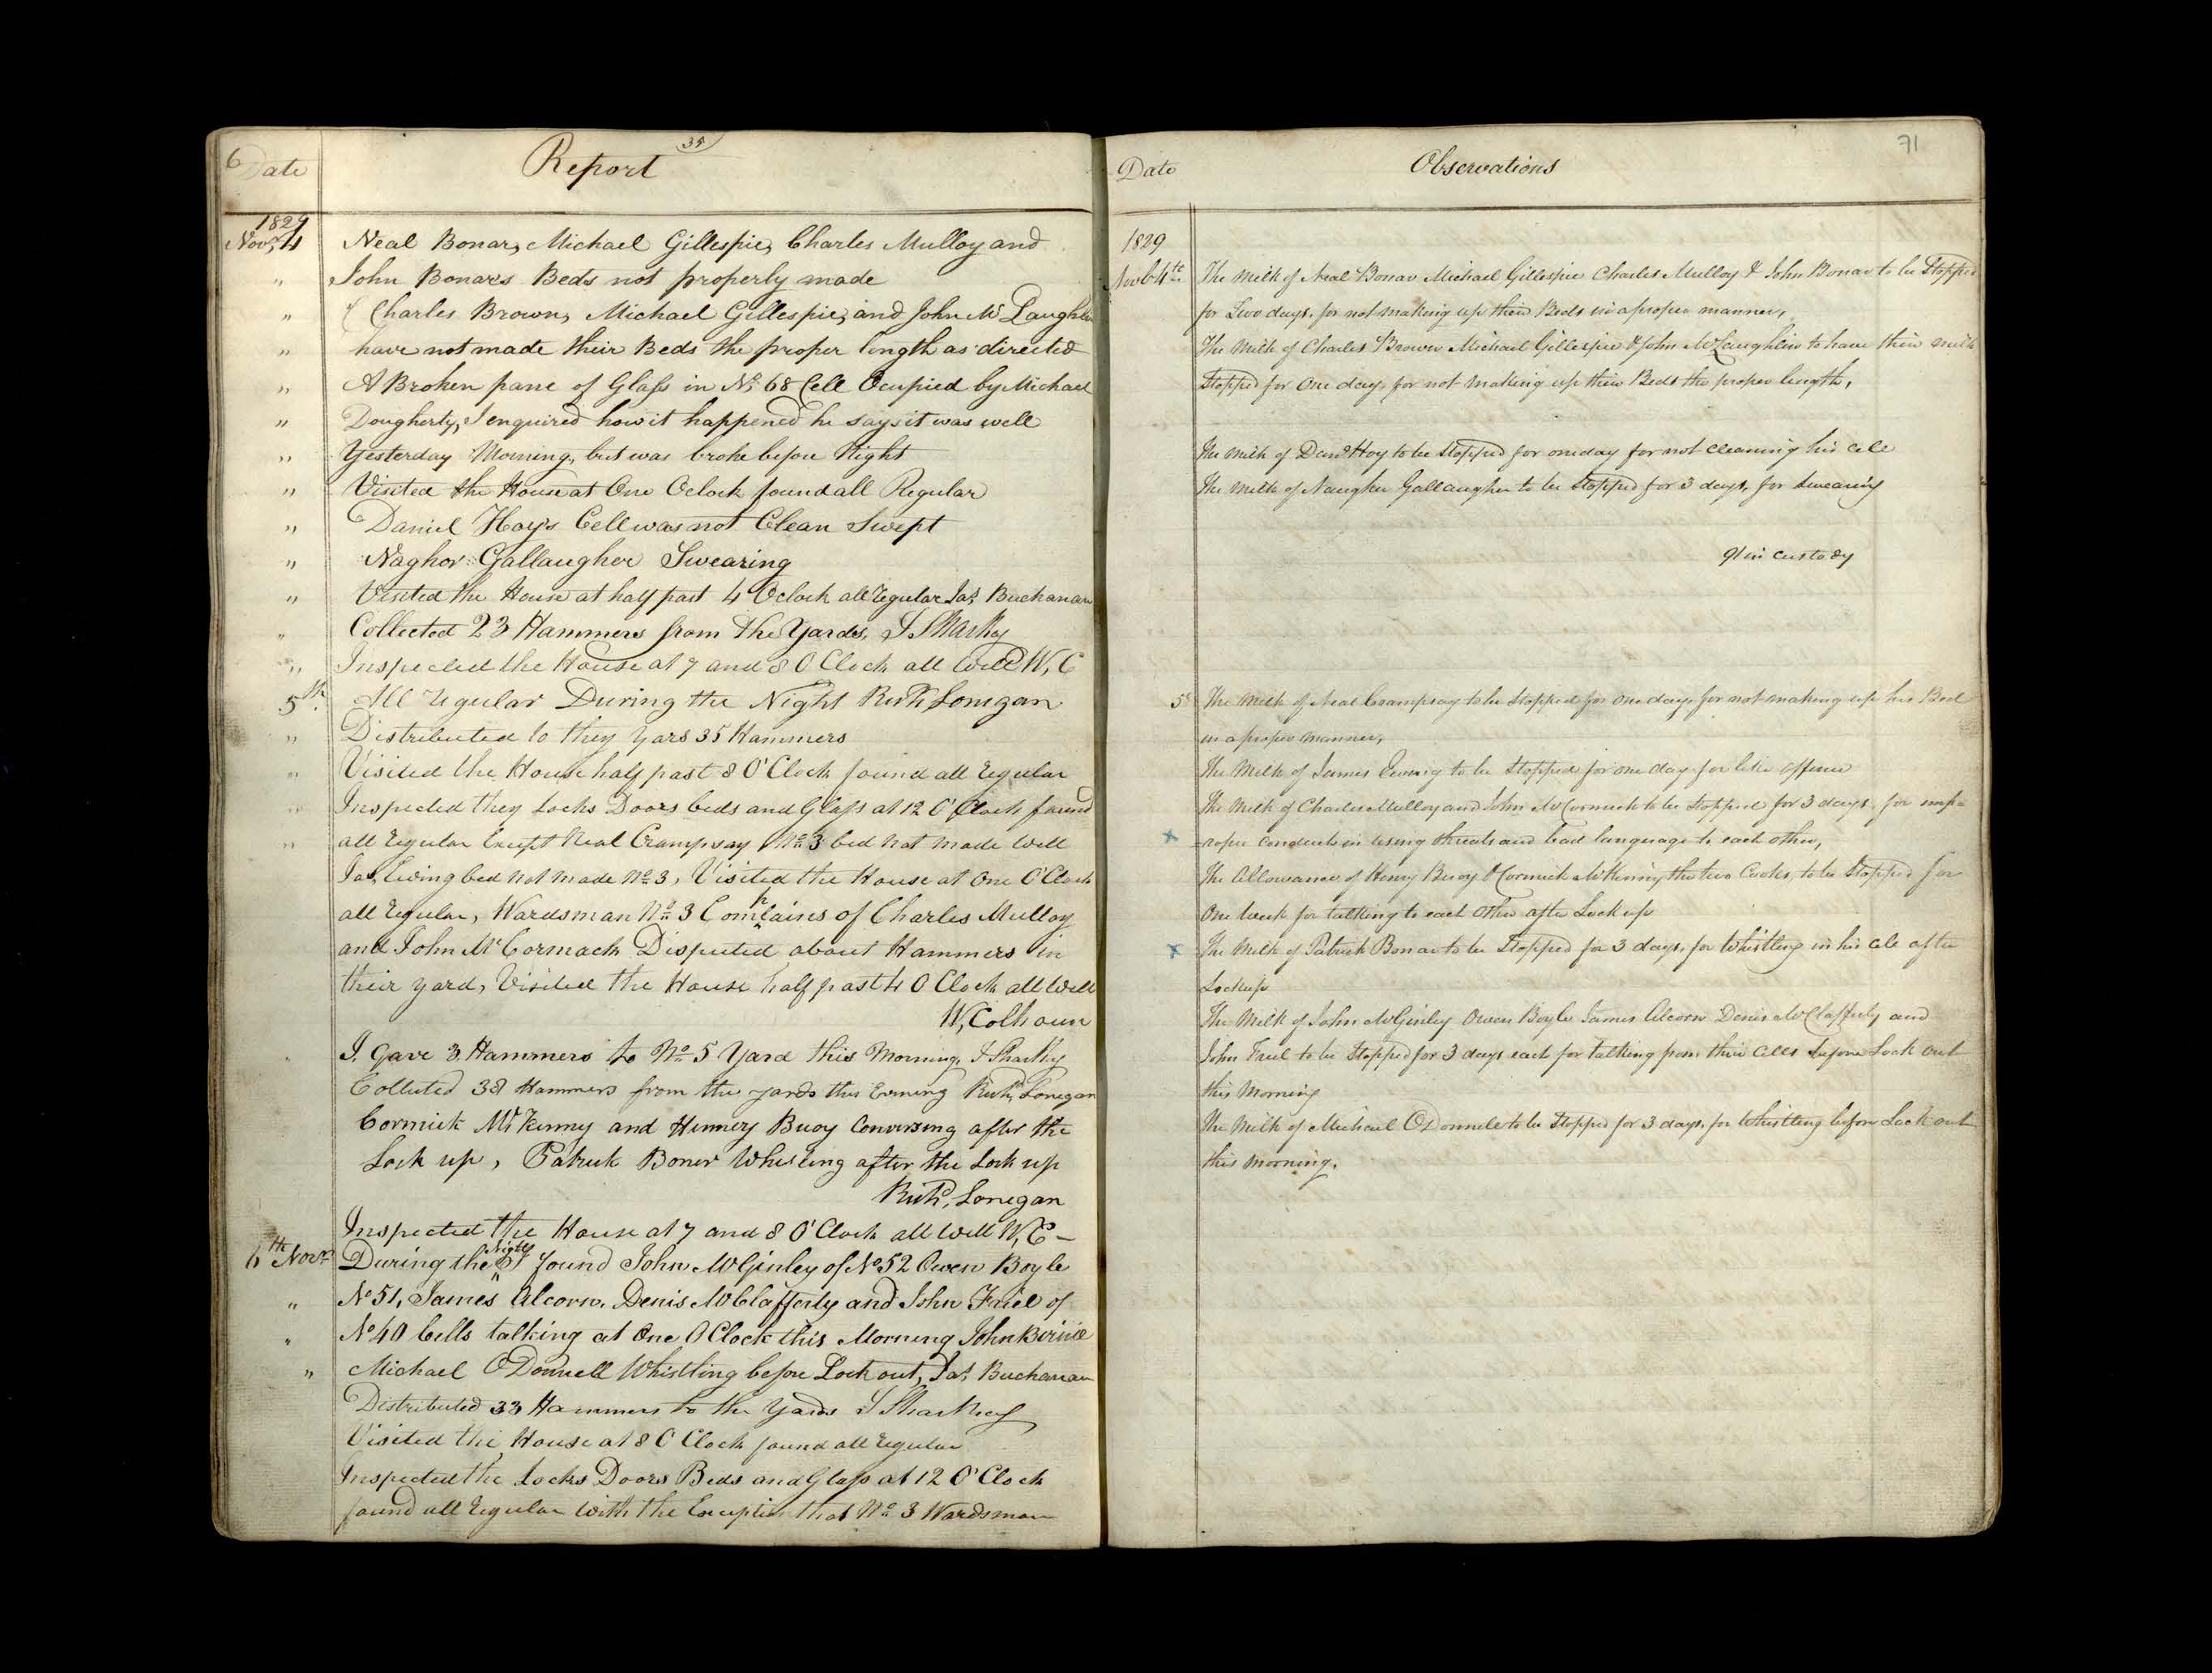 6
Date
Report
35
1829
Novr 4 Neal Bonar, Michael Gillespie, Charles Mulloy and
" John Bonars Beds not properly made
" Charles Brown, Michael Gillespie, and John Mc Laughlin
" have not made their Beds the proper length as directed
" A Broken pane of Glass in No 68 Cell Ocupied by Michael
" Dougherty, I enquired how it happened he says it was well
" Yesterday Morning, but was broke before Night
" Visited the House at One Oclock found all Regular
" Daniel Hoy's Cell was not Clean Swept
" Naghor Gallaugher Swearing
" Visited the House at half past 4 Oclock all regular Jas Buchanan
" Collected 23 Hammers from the Yards, J Sharkey
" Inspected the House at 7 and 8 O Clock all well W, C
5th All regular During the Night Richd Lonigan
" Distributed to they yars 35 Hammers
" Visited the House half past 8 O'Clock found all regular
" Inspected they Locks Doors beds and Glass at 12 O'Clock found
" all regular Except Neal Crampsay No 3 bed not made well
Jas Ewing bed not made No 3, Visited the House at One O'Clock
all regular, Wardsman No 3 Complains of Charles Mulloy
and John McCormack Disputed about Hammers in
their yard, Visited the House half past 4 O Clock all well
W, Colhoun
" I Gave 3 Hammers to No 5 Yard this Morning, J Sharkey
Collected 38 Hammers from the yards this Evening Richd Lonigan
Cormick McKenny and Henney Buoy Conversing after the
Lock up, Patrick Boner Whisling after the Lock up
Richd, Lonigan
Inspected the House at 7 and 8 O'Clock all well W, C-
6th Novr During the Night I found John McGinley of No 52 Owen Boyle
" No 51, James Alcorn, Denis McClafferty and John Friel of
" No 40 Cells talking at One O Clock this Morning John Birnie
" Michael O'Donnell Whistling before Lock out, Jas Buchanan
Distributed 33 Hammers to the Yards J Sharkey
Visited the House at 8 O Clock found all regular
Inspected the Locks Doors Beds and Glass at 12 O'Clock
found all regular with the Exception that No 3 Wardsman
71
Date
Observations
1829
Novb 4th The Milk of Neal Bonar Michael Gillespie Charles Mulloy & John Bonar to be Stopped
for Two days, for not making up their Beds in a proper manner,
The Milk of Charles Brown Michael Gillespie & John McLaughlin to have their milk
Stopped for One day, for not making up their Beds the proper length,
The Milk of Danl Hoy to be Stopped for one day for not cleaning his Cell
The Milk of Naugher Gallaugher to be Stopped for 3 days, for Swearing
91 in custody
5th The Milk of Neal Crampsay to be Stopped for One day, for not making up his Bed
in a proper manner,
The Milk of James Ewing to be Stopped for one day for like offence
The Milk of Charles Mulloy and John McCormick to be Stopped for 3 days, for imp=
x =roper conduct in using threats and bad language to each other,
The Allowance of Henry Buoy & Cormick McKenny the two Cooks, to be Stopped for
One Week for talking to each other after Lock up
x The Milk of Patrick Bonar to be Stopped for 3 days, for Whistling in his Cell after
Lockup
The Milk of John McGinley Owen Boyle James Alcorn Denis McClafferty and
John Friel to be Stopped for 3 days each for talking from their Cells before Lock out
this Morning
The Milk of Michael ODonnell to be Stopped for 3 days, for Whistling before Lock out
this morning.